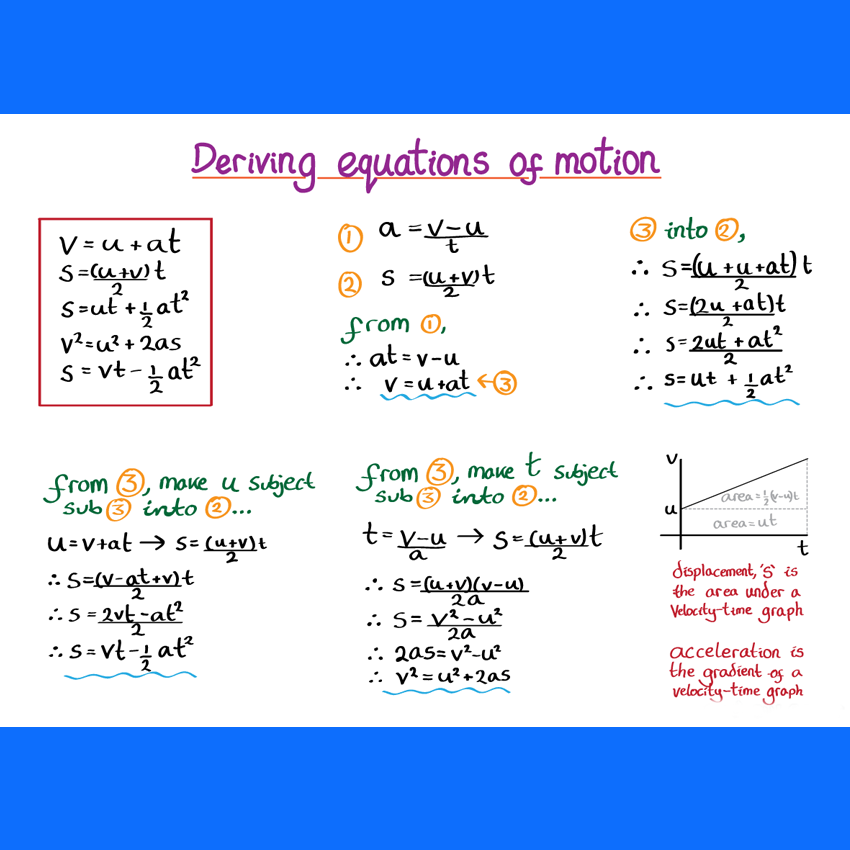 Deriving equations of motion
v = u + at
s = (u+v)/2 t
s = ut + 1/2 at²
v² = u² + 2as
s = vt - 1/2 at²
① a = v-u/t
② s = (u+v)/2 t
from ①,
∴ at = v-u
∴ v = u+at ←③
③ into ②,
∴ s = (u+u+at)/2 t
∴ s = (2u+at)t/2
∴ s = 2ut + at²/2
∴ s = ut + 1/2 at²
from ③, make u subject
sub ③ into ②...
u = v+at → s = (u+v)/2 t
∴ s = (v-at+v)/2 t
∴ s = 2vt-at²/2
∴ s = vt - 1/2 at²
from ③, make t subject
sub ③ into ②...
t = v-u/a → s = (u+v)/2 t
∴ s = (u+v)(v-u)/2a
∴ s = v²-u²/2a
∴ 2as = v²-u²
∴ v² = u²+2as
v
u
area = 1/2(v-u)t
area = ut
t
displacement, 's' is
the area under a
velocity-time graph
acceleration is
the gradient of a
velocity-time graph